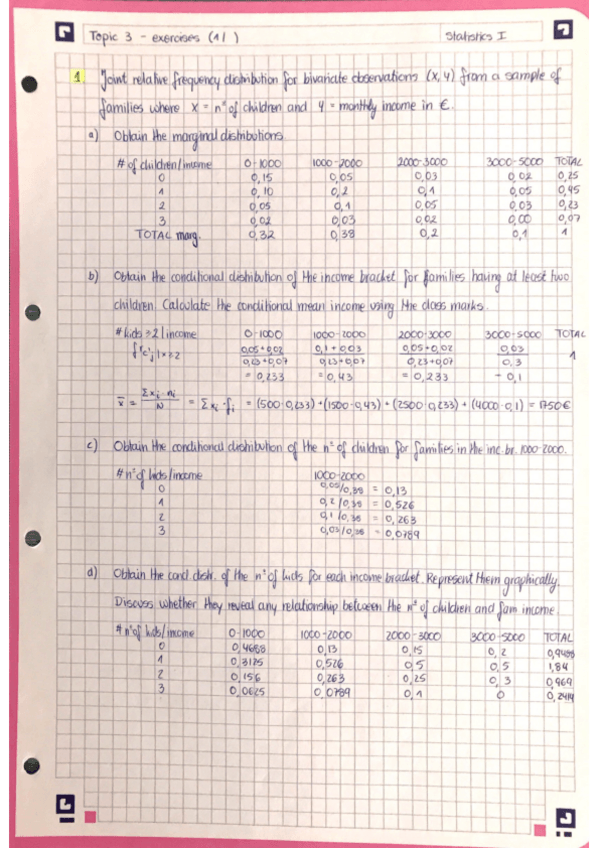 Topic 3 - exercises (1/ ) Statistics I
1. Joint relative frequency distribution for bivariate observations (x, y) from a sample of
families where x = nº of children and y = monthly income in €.
a) Obtain the marginal distributions
# of children/income 0-1000 1000-2000 2000-3000 3000-5000 TOTAL
0 0,15 0,05 0,03 0,02 0,25
1 0,10 0,2 0,1 0,05 0,45
2 0,05 0,1 0,05 0,03 0,23
3 0,02 0,03 0,02 0,00 0,07
TOTAL marg. 0,32 0,38 0,2 0,1 1
b) Obtain the conditional distribution of the income bracket for families having at least two
children. Calculate the conditional mean income using the class marks.
# kids ≥2 | income 0-1000 1000-2000 2000-3000 3000-5000 TOTAL
0,05+0,02 0,1+0,03 0,05+0,02 0,03
0,23+0,07 0,23+0,07 0,23+0,07 0,3 1
= 0,233 = 0,43 = 0,233 = 0,1
x̄ = Σxi·ni / N = Σxi·fi = (500·0,233)+(1500·0,43)+(2500·0,233)+(4000·0,1) = 1750€
c) Obtain the conditional distribution of the nº of children for families in the inc. br. 1000-2000.
# nº of kids/income 1000-2000
0 0,05/0,38 = 0,13
1 0,2/0,38 = 0,526
2 0,1/0,38 = 0,263
3 0,03/0,38 = 0,0789
d) Obtain the cond distr. of the nº of kids for each income bracket. Represent them graphically.
Discuss whether they reveal any relationship between the nº of children and fam income.
# nº of kids/income 0-1000 1000-2000 2000-3000 3000-5000 TOTAL
0 0,4688 0,13 0,15 0,2 0,9488
1 0,3125 0,526 0,5 0,5 1,84
2 0,156 0,263 0,25 0,3 0,969
3 0,0625 0,0789 0,1 0 0,2414